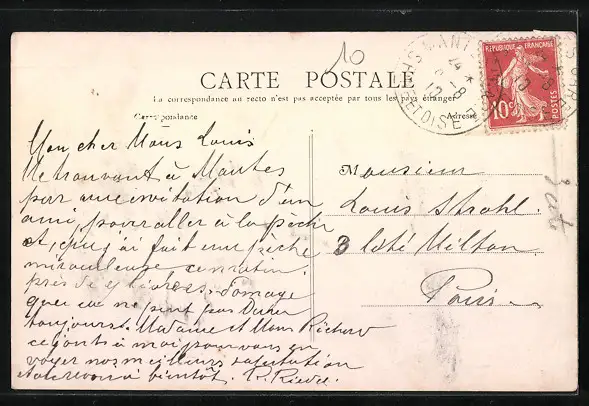 10
CARTE POSTALE
La correspondance au recto n'est pas acceptée par tous les pays étranger
Correspondance
Adresse
REPUBLIQUE FRANÇAISE
10c
POSTES
Mon cher Mons Louis
Me trouvant à Mantes
par une invitation d'un
ami, pour aller à la pêche
et, que j'ai fait une pêche
miraculeuse ce matin.
près de 4 livres, domage
que ça ne peut pas Durer
toujours. Madame et Mons Richard
ce joints à moi pour vous en
voyer nos meilleurs salutation
et au revoir à bientôt.
Monsieur
Louis Strohl.
3 Cité Milton
Paris